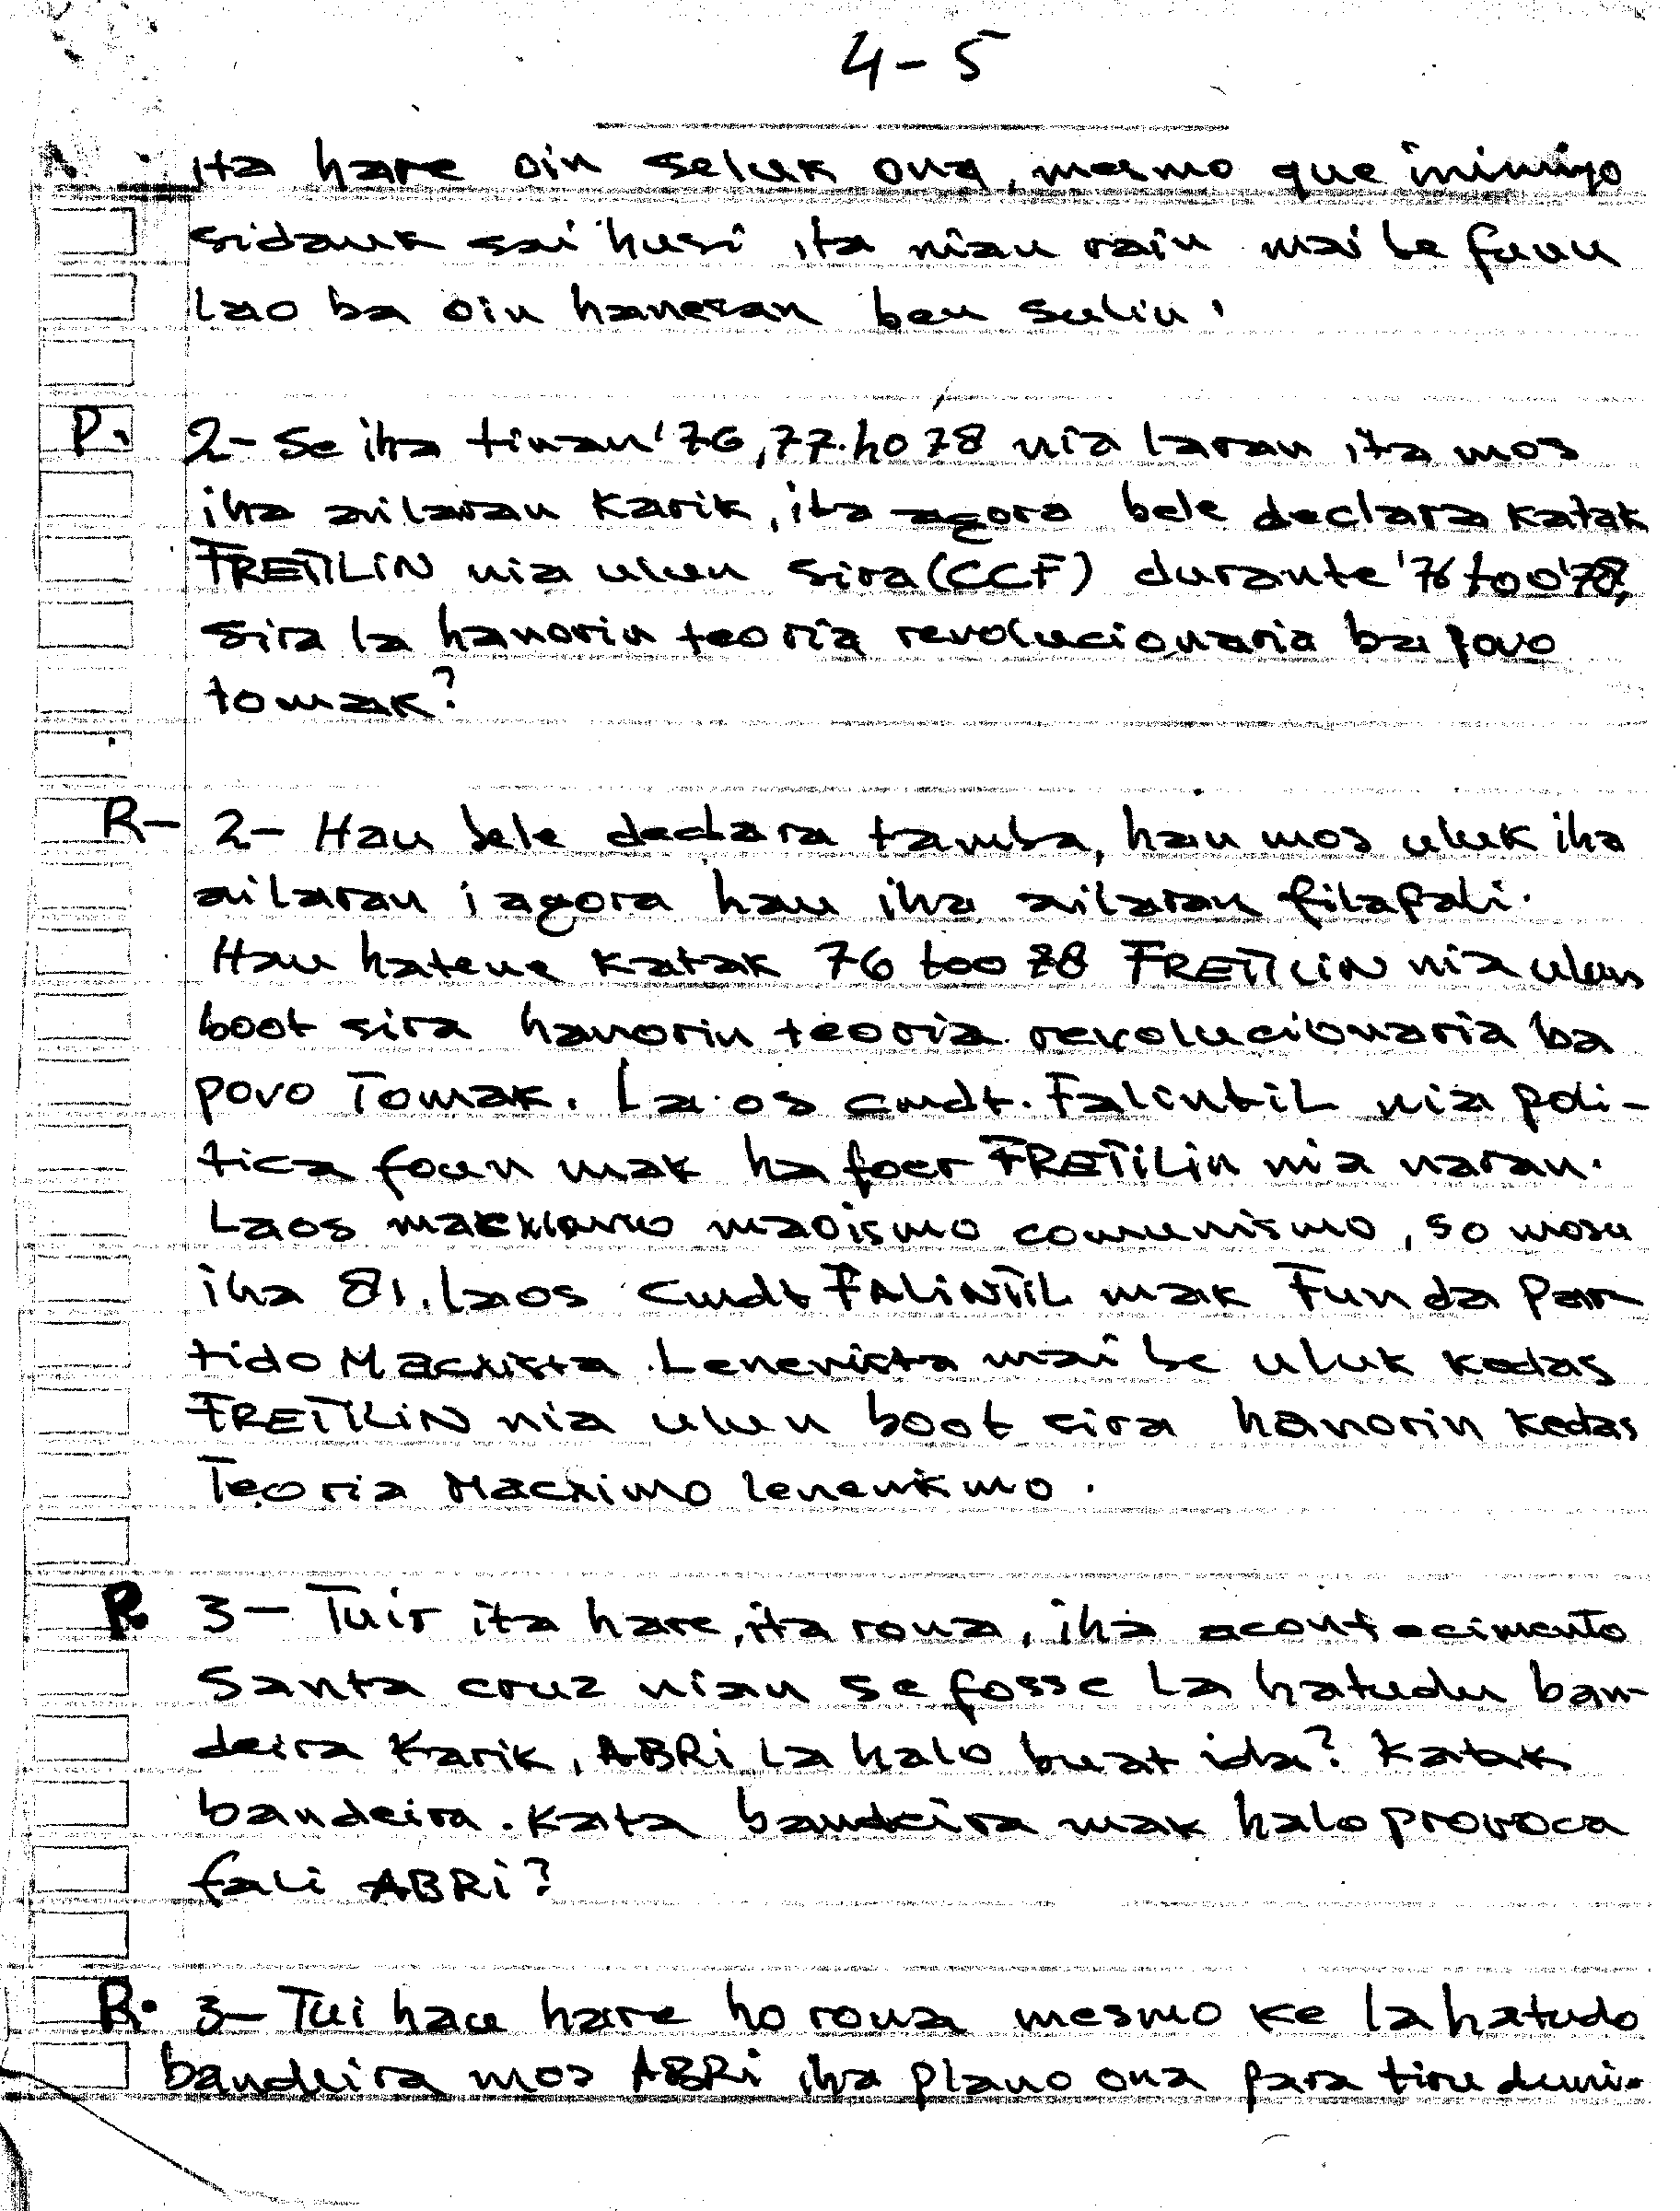 4-5
ita hare oin seluk ona, mesmo que inimigo
sidauk sai husi ita nian rain mai be funu
lao ba oin hanesan ben sulin.
P. 2- Se iha tinan '76, 77. ho 78 nia laran ita mos
iha ailaran Karik, ita agora bele declara katak
FRETILIN nia ulun sira (CCF) durante '76 too '78,
sira la hanorin teoria revolucionaria ba povo
tomak?
R- 2- Hau bele declara tamba, hau mos uluk iha
ailaran i agora hau iha ailaran filafali.
Hau hatene katak 76 too 78 FRETILIN nia ulun
boot sira hanorin teoria revolucionaria ba
povo Tomak. La os cmdt. Falintil nia poli-
tica foun mak ha foer FRETILIN nia naran.
Laos maoismo comunismo, so mosu
iha 81, laos Cmdt FALINTIL mak Funda Par
tido Macxista Lenenista mai be uluk kedas
FRETILIN nia ulun boot sira hanorin kedas
Teoria Macximo lenenismo.
P. 3- Tuir ita hare, ita rona, iha acontecimento
Santa cruz nian se fosse la hatudu ban-
deira Karik, ABRI La halo buat ida? Katak
bandeira. Kata bandeira mak halo provoca
fali ABRI?
R. 3- Tui hau hare ho rona mesmo ke la hatudo
bandeira mos ABRI iha plano ona para tiru dumi-